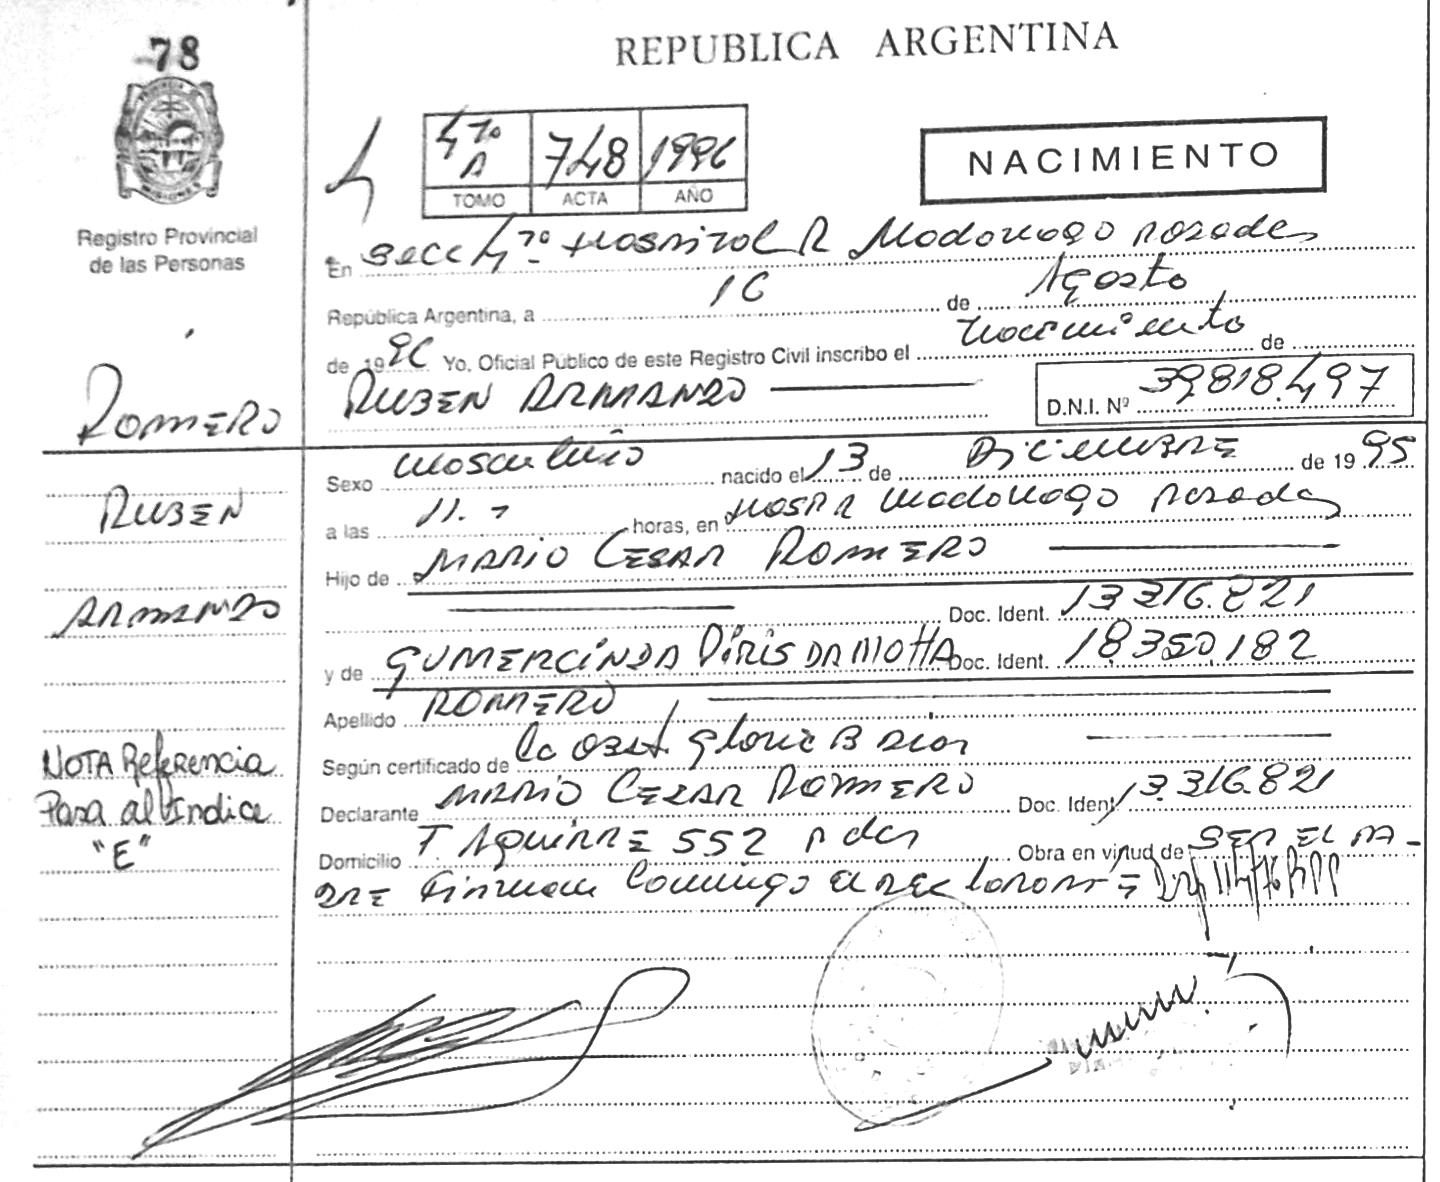 78
REPUBLICA ARGENTINA
4to A 748 1996
TOMO ACTA AÑO
NACIMIENTO
Registro Provincial
de las Personas
En Secc 4to Hospital R Madariaga Posadas
República Argentina, a 16 de Agosto
de 1996 Yo, Oficial Público de este Registro Civil inscribo el nacimiento de
RUBEN ARMANDO
D.N.I. Nº 39.818.497
ROMERO
Sexo masculino nacido el 13 de Diciembre de 1995
RUBEN
a las 11.- horas, en Hosp R Madariaga Posadas
Hijo de MARIO CESAR ROMERO
ARMANDO
Doc. Ident. 13316.821
y de GUMERCINDA PIRIS DA MOTTA Doc. Ident. 18.350.182
Apellido ROMERO
NOTA Referencia
Pasa al Indice
"E"
Según certificado de la Obst. Gloria B
Declarante MARIO CESAR ROMERO Doc. Ident. 13.316.821
Domicilio T AGUIRRE 552 Pdas Obra en virtud de SER EL PA-
DRE Firman conmigo el declarante